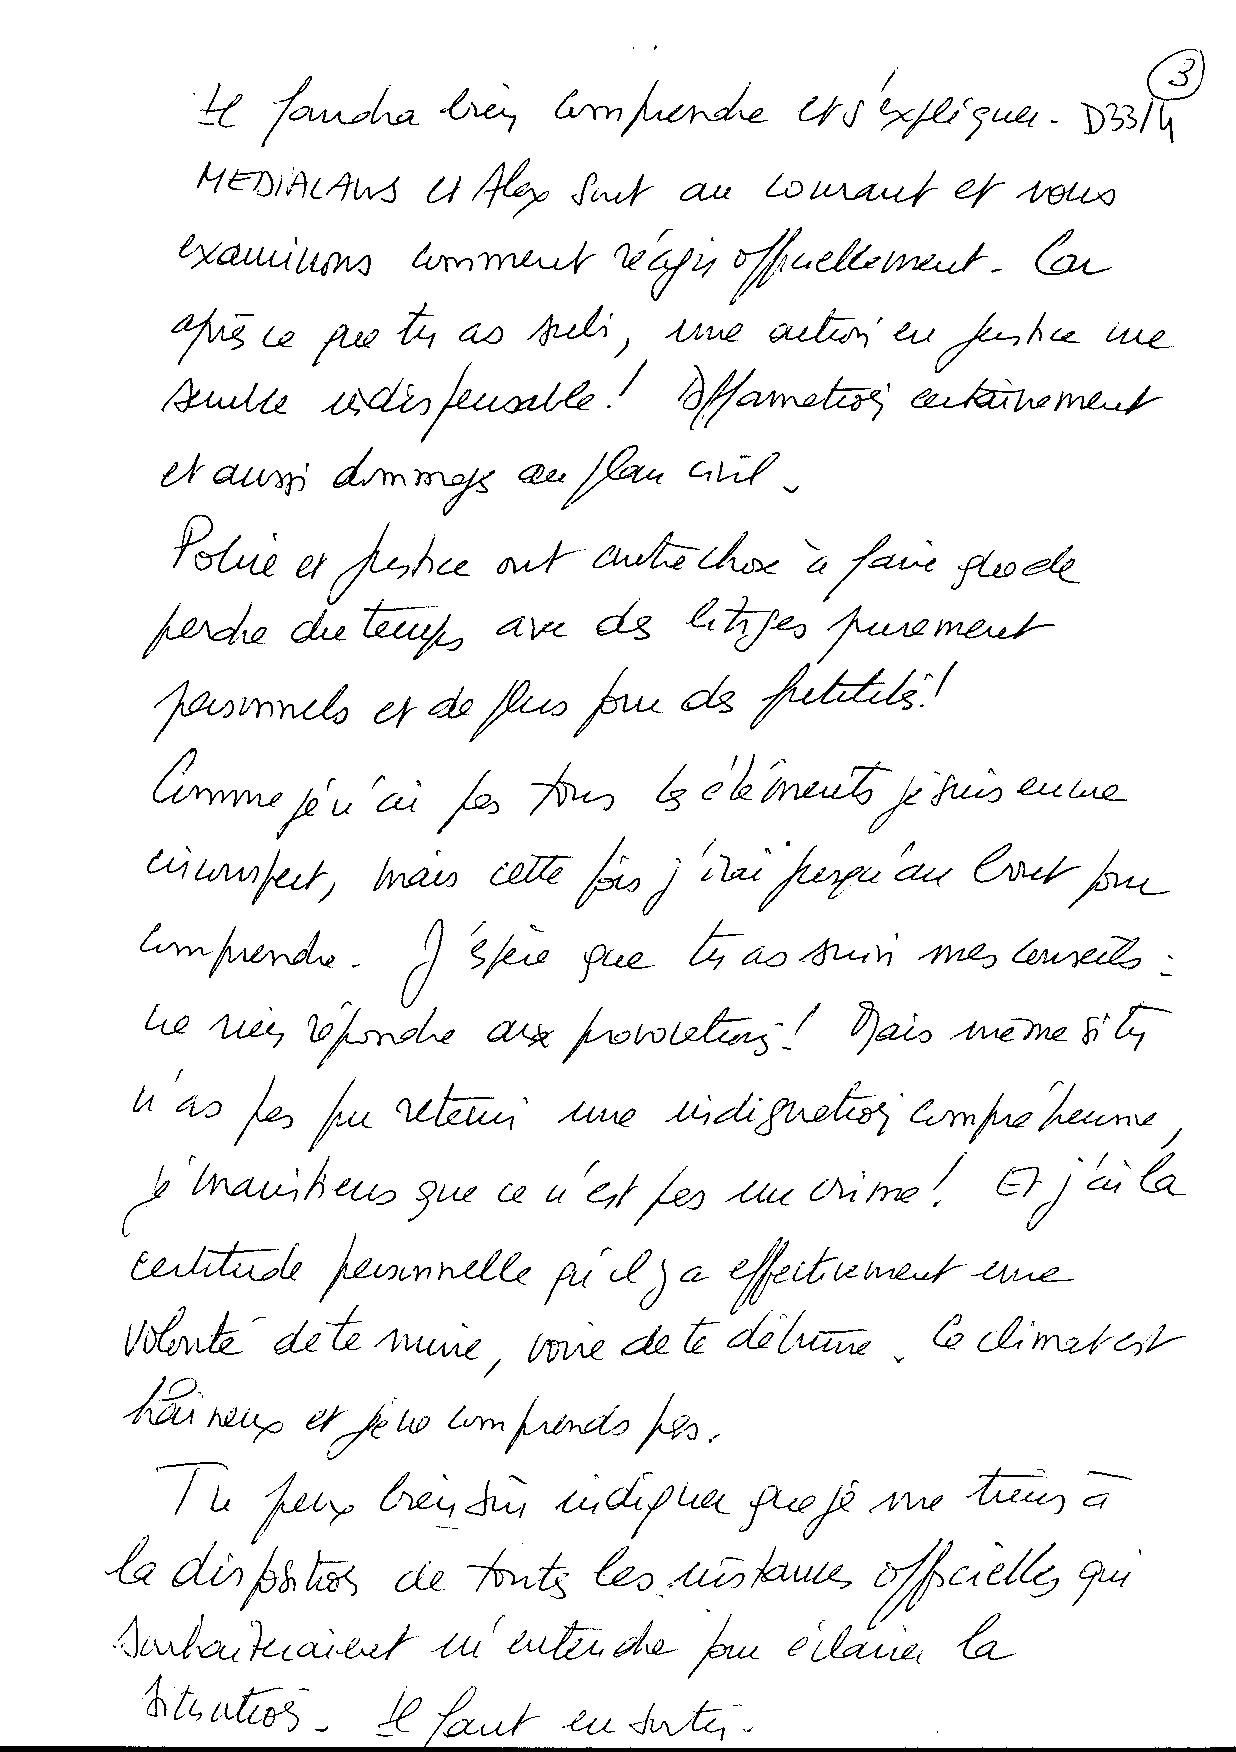 3
Il faudra bien comprendre et s'expliquer. D33/4
MEDIALAWS et Alex sont au courant et nous
examinons comment réagir officiellement. Car
après ce que tu as subi, une action en justice me
semble indispensable ! Diffamation certainement
et aussi dommages au plan civil.
Police et justice ont autre chose à faire que de
perdre du temps avec des litiges purement
personnels et de plus pour des futilités !
Comme je n'ai pas tous les éléments je suis encore
circonspect, mais cette fois j'irai jusqu'au bout pour
comprendre. J'espère que tu as suivi mes conseils :
ne rien répondre aux provocations ! Mais même si tu
n'as pas pu retenir une indignation compréhensive,
je maintiens que ce n'est pas un crime ! Et j'ai la
certitude personnelle qu'il y a effectivement une
volonté de te nuire, voire de te détruire. Ce climat est
haineux et je ne comprends pas.
Tu peux bien sûr indiquer que je me tiens à
la disposition de toutes les instances officielles qui
souhaiteraient m'entendre pour éclairer la
situation. Il faut en sortir.